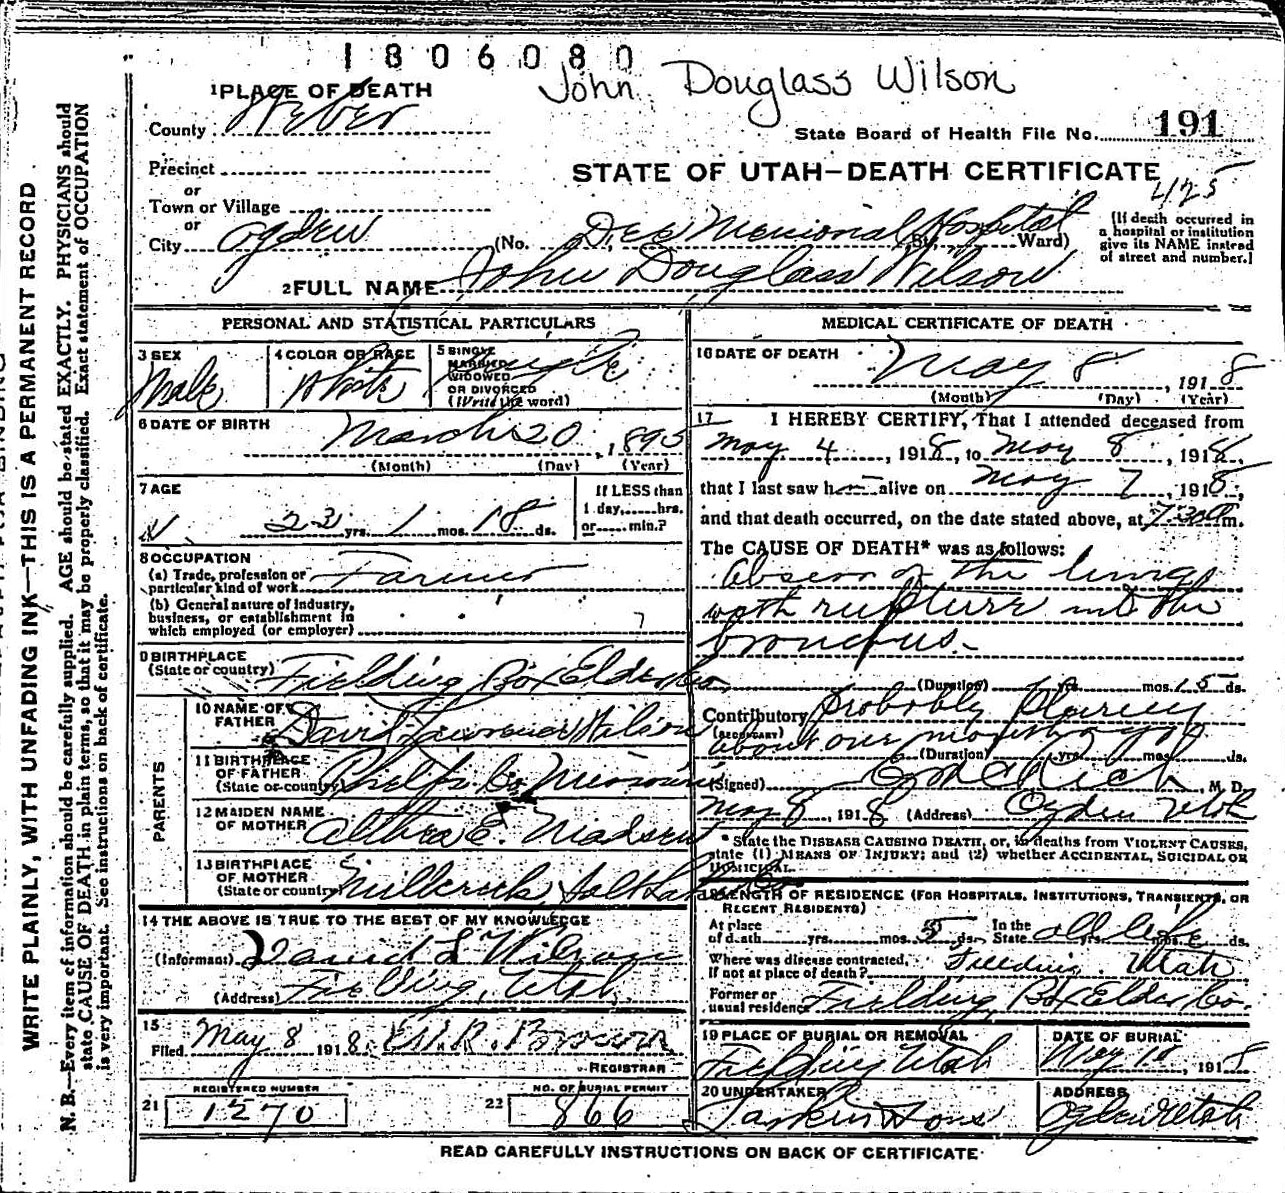 1806080
John Douglass Wilson
1 PLACE OF DEATH
County Weber
State Board of Health File No. 191
Precinct
STATE OF UTAH—DEATH CERTIFICATE
or
425
Town or Village
or
City Ogden (No. Dee Memorial Hospital St. Ward)
(If death occurred in
a hospital or institution
give its NAME instead
of street and number.)
2 FULL NAME John Douglass Wilson
PERSONAL AND STATISTICAL PARTICULARS
3 SEX
Male
4 COLOR OR RACE
White
5 SINGLE
MARRIED
WIDOWED
OR DIVORCED
(Write the word)
Single
6 DATE OF BIRTH
March 20, 1895
(Month) (Day) (Year)
7 AGE
23 yrs. 1 mos. 18 ds.
If LESS than
1 day,......hrs.
or......min.?
8 OCCUPATION
(a) Trade, profession or
particular kind of work Farmer
(b) General nature of industry,
business, or establishment in
which employed (or employer)
9 BIRTHPLACE
(State or country) Fielding Box Elder Co.
PARENTS
10 NAME OF
FATHER David Lawrence Wilson
11 BIRTHPLACE
OF FATHER
(State or country) Phelps Co. Missouri
12 MAIDEN NAME
OF MOTHER Althea E. Madsen
13 BIRTHPLACE
OF MOTHER
(State or country) Millcreek Salt Lake Co
14 THE ABOVE IS TRUE TO THE BEST OF MY KNOWLEDGE
(Informant) David L Wilson
(Address) Fielding, Utah
15
Filed May 8 1918. Brown
REGISTRAR
REGISTERED NUMBER
21 1270
NO. OF BURIAL PERMIT
22 866
MEDICAL CERTIFICATE OF DEATH
16 DATE OF DEATH
May 8, 1918
(Month) (Day) (Year)
17 I HEREBY CERTIFY, That I attended deceased from
May 4, 1918, to May 8, 1918,
that I last saw him alive on May 7, 1918,
and that death occurred, on the date stated above, at 7:30 m.
The CAUSE OF DEATH* was as follows:
Abscess of the lung
with rupture into the
bronchus.
(Duration) yrs. mos. 15 ds.
Contributory probably Pleurisy
(SECONDARY) about one month ago
(Duration) yrs. mos. ds.
(Signed) Rich, M. D.
May 8, 1918 (Address) Ogden Utah
* State the DISEASE CAUSING DEATH, or, in deaths from VIOLENT CAUSES,
state (1) MEANS OF INJURY; and (2) whether ACCIDENTAL, SUICIDAL OR
HOMICIDAL.
18 LENGTH OF RESIDENCE (FOR HOSPITALS, INSTITUTIONS, TRANSIENTS, OR
RECENT RESIDENTS)
At place
of death yrs. mos. 5 ds.
In the
State all life yrs. mos. ds.
Where was disease contracted,
If not at place of death? Fielding Utah
Former or
usual residence Fielding, Box Elder Co.
19 PLACE OF BURIAL OR REMOVAL
Fielding Utah
DATE OF BURIAL
May 10, 1918
20 UNDERTAKER
Larkin & Sons
ADDRESS
Ogden Utah
READ CAREFULLY INSTRUCTIONS ON BACK OF CERTIFICATE
WRITE PLAINLY, WITH UNFADING INK—THIS IS A PERMANENT RECORD
N. B.—Every item of information should be carefully supplied. AGE should be stated EXACTLY. PHYSICIANS should
state CAUSE OF DEATH in plain terms, so that it may be properly classified. Exact statement of OCCUPATION
is very important. See instructions on back of certificate.